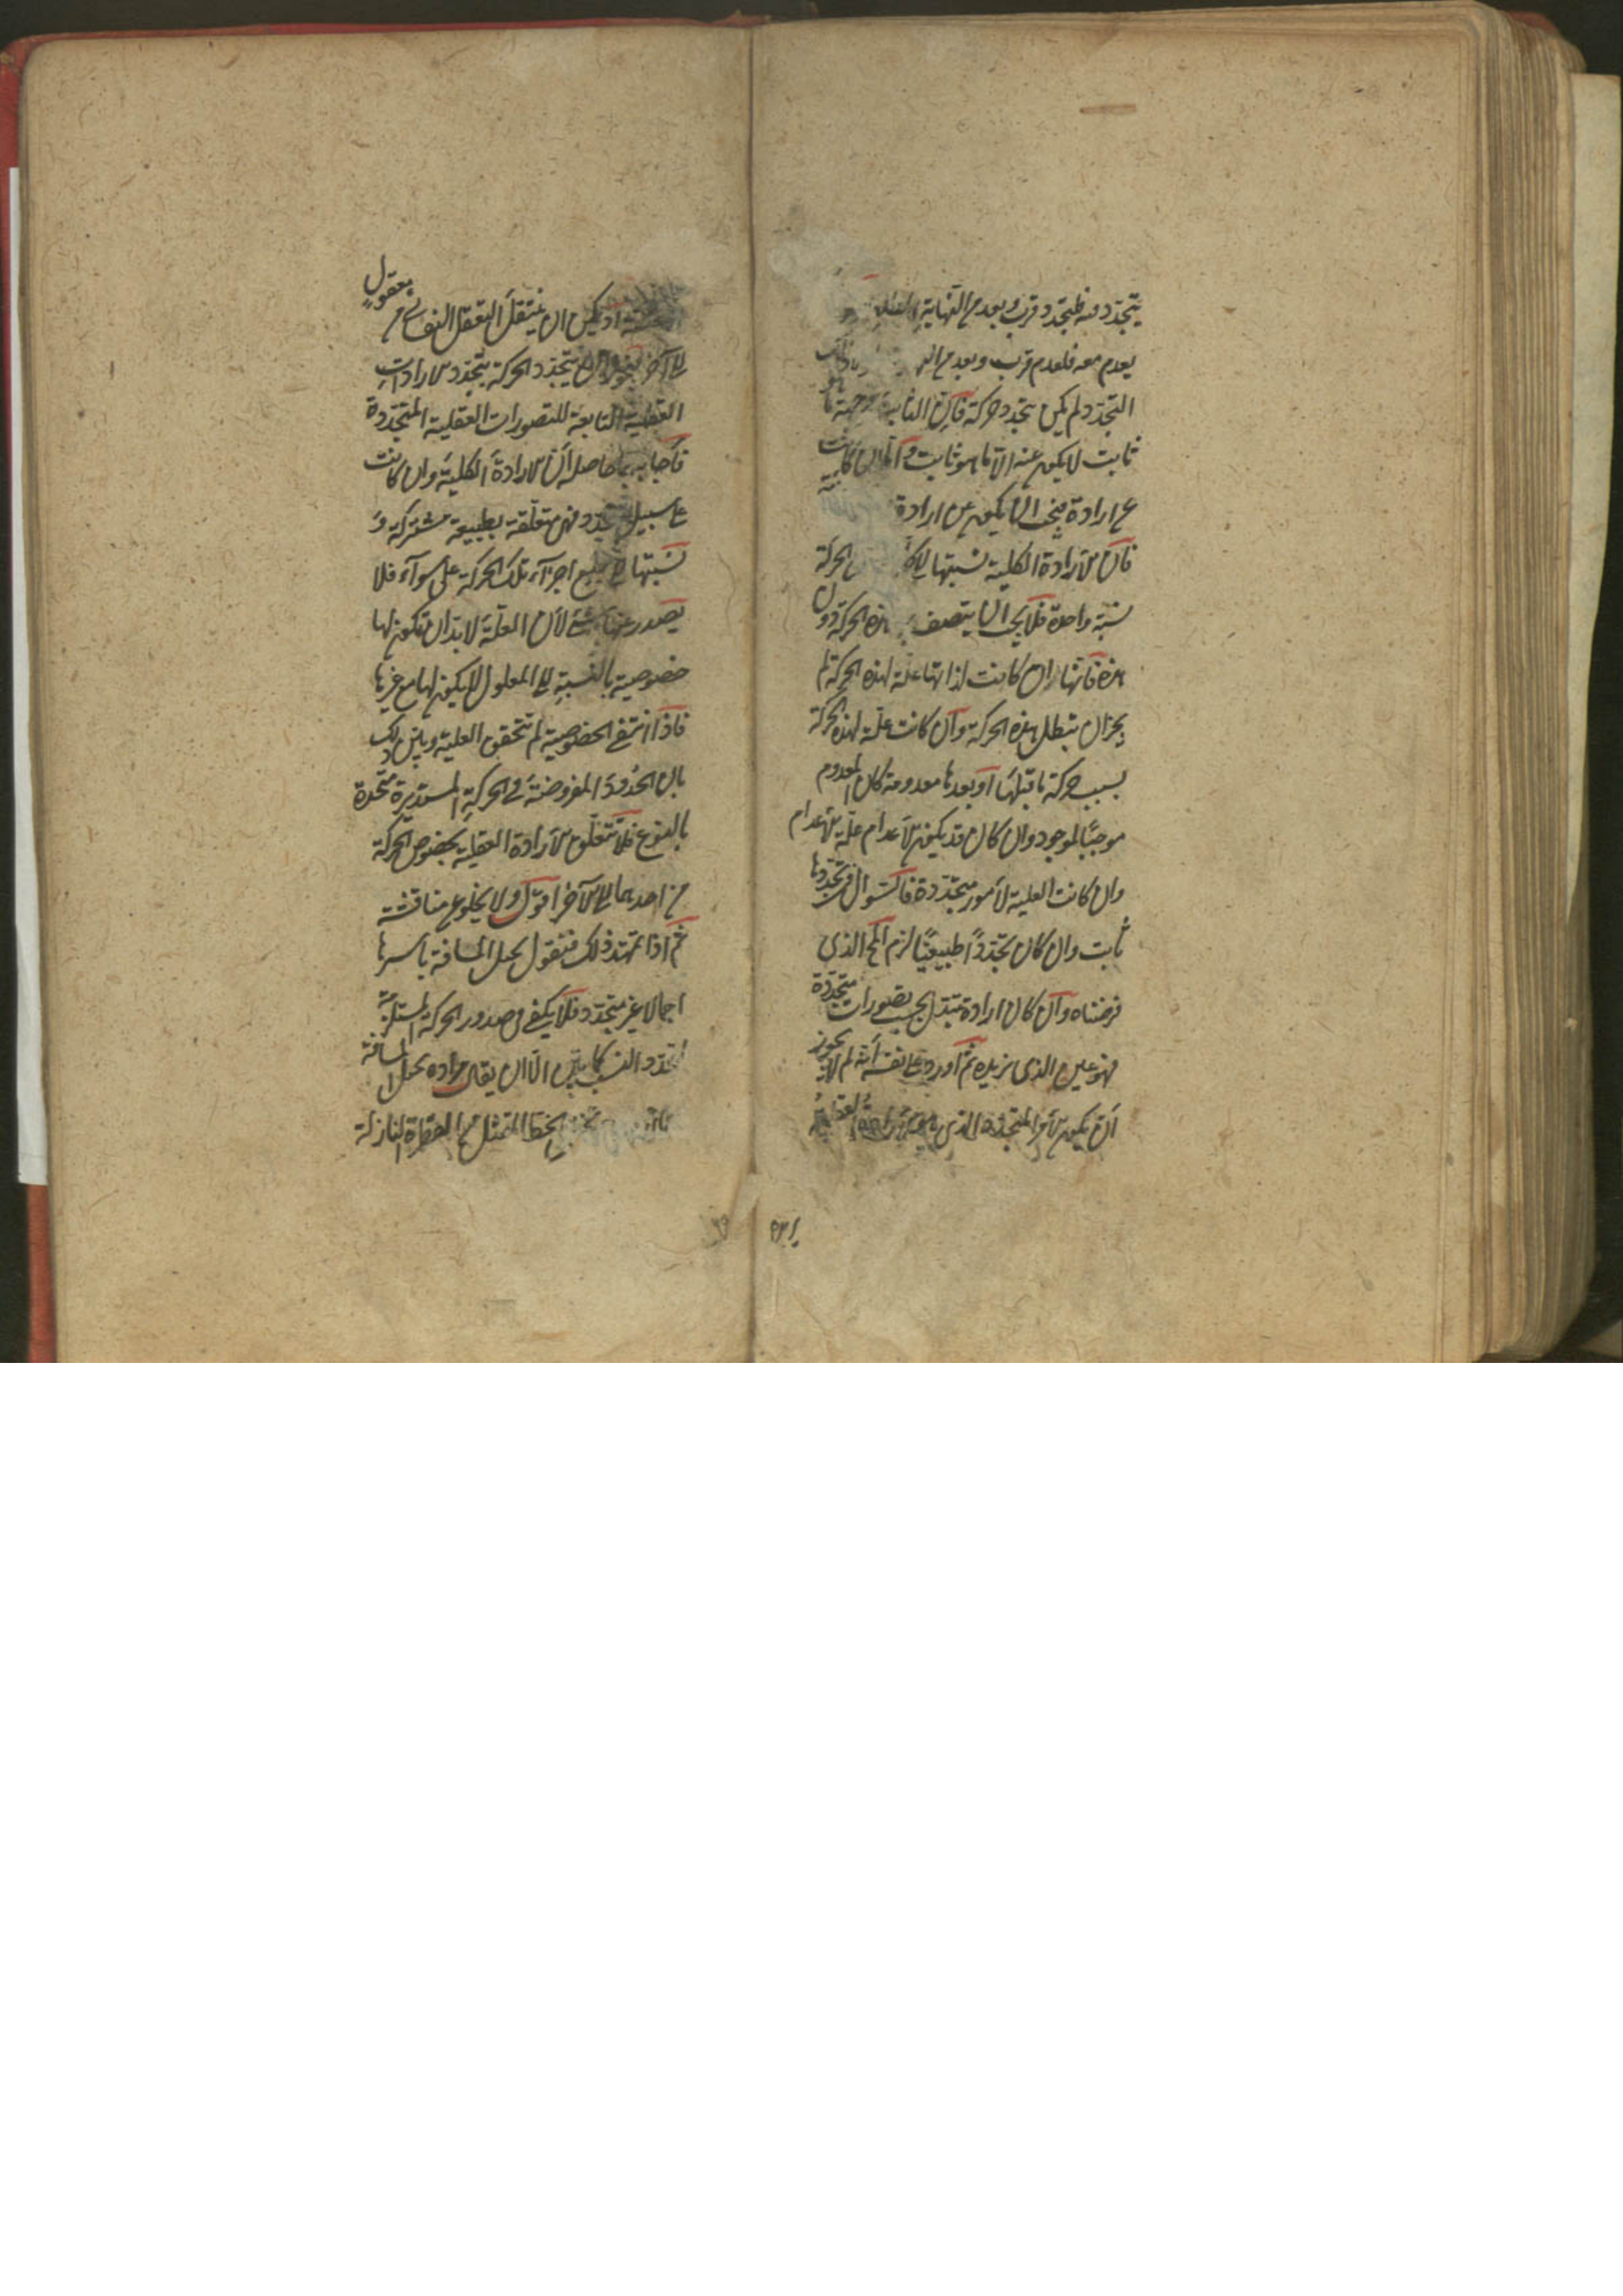 يتجدد منه فلتجدد قرب وبعد من النهاية
يعدم معه فلعدم قرب وبعد من
التجدد لم يكن تجدد حركة فان الثابت من جهة ما هو
ثابت لا يكون عنه الا ما هو ثابت واما ان كانت
عن ارادة فيجب ان يكون عن ارادة
فان الارادة الكلية نسبتها الى كل الحركة
نسبة واحدة فلا يجب ان يتصف هذه الحركة دون
هذه فانها ان كانت لذاتها علة لهذه الحركة لم
يجز ان تبطل هذه الحركة وان كانت علة لهذه الحركة
بسبب حركة ما قبلها او بعدها معدومة كان المعدوم
موجبا لموجود وان كان قد يكون الاعدام علة للاعدام
وان كانت العلية لأمور متجددة فالسؤال في تجددها
ثابت وان كان تجددا طبيعيا لزم المح الذي
فرضناه وان كان اراديا يتبدل بحسب تصورات متجددة
فهو عين الذي نريده ثم اورد على نفسه انه لم لا يجوز
ان يكون الامر المتجدد الذي الارادة العقلية
اذ يمكن ان ينتقل التعقل النفساني من معقول
الى آخر فيجوز ان يتجدد الحركة بتجدد الارادات
العقلية التابعة للتصورات العقلية المتجددة
فأجاب بما حاصله ان الارادة الكلية وان كانت
على سبيل تجدد فهي متعلقة بطبيعة مشتركة و
نسبتها الى جميع اجزاء تلك الحركة على سواء فلا
يصدر عنها شئ لأن العلة لا بد ان تكون لها
خصوصية بالنسبة الى المعلول لا يكون لها مع غيرها
فاذا انتفى الخصوصية لم تتحقق العلية وبين ذلك
بان الحدود المفروضة في الحركة المستديرة متحدة
بالنوع فلا تتعلق الارادة العقلية بخصوص الحركة
من احدهما الى الآخر اقول ولا يخلو عن مناقشة
ثم اذا تمهد ذلك فنقول تخيل المسافة بأسرها
اجمالا غير متجدد فلا يكفي في صدور الحركة
لتجدد النسب كما بين الا ان يقال مراده تخيل المسافة
الخط المتمثل من القطرة النازلة